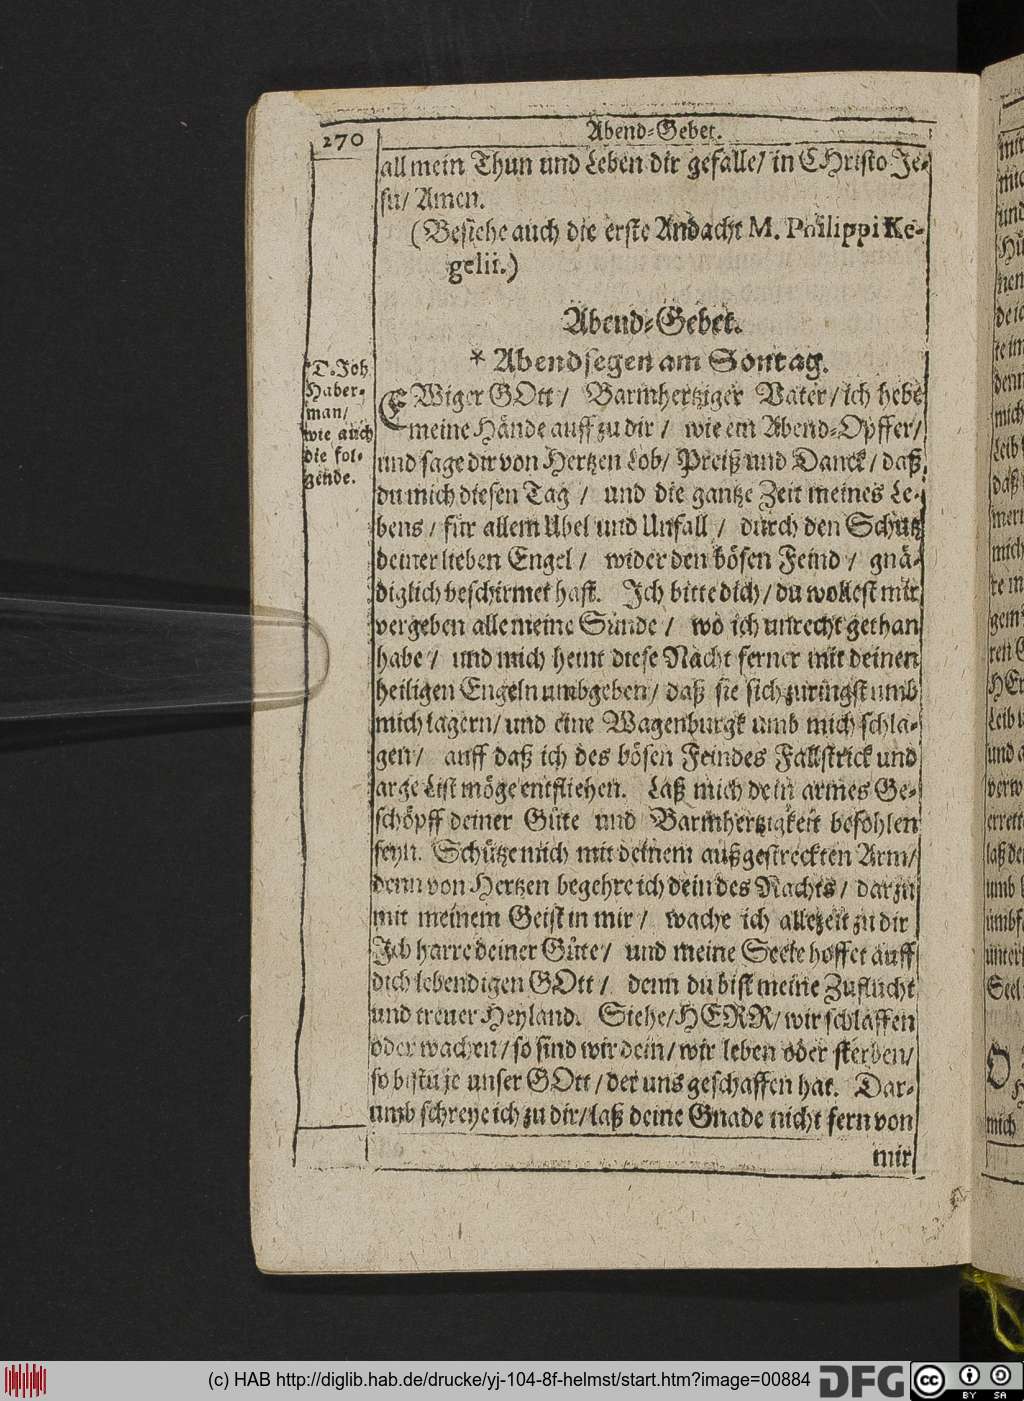 270
Abend-Gebet.
all mein Thun und Leben dir gefalle/ in CHristo Je-
su/ Amen.
(Besiehe auch die erste Andacht M. Philippi Ke-
gelii.)
Abend-Gebet.
* Abendsegen am Sontag.
*D. Joh.
Haber-
man/
wie auch
die fol-
gende.
EWiger GOtt / Barmhertziger Vater/ ich hebe
meine Hände auff zu dir / wie ein Abend-Opffer/
und sage dir von Hertzen Lob/ Preiß und Danck / daß
du mich diesen Tag / und die gantze Zeit meines Le-
bens / für allem Ubel und Unfall / durch den Schutz
deiner lieben Engel / wider den bösen Feind / gnä-
diglich beschirmet hast. Ich bitte dich/ du wollest mir
vergeben alle meine Sünde / wo ich unrecht gethan
habe / und mich heint diese Nacht ferner mit deinen
heiligen Engeln umbgeben/ daß sie sich zuringst umb
mich lagern/ und eine Wagenburgk umb mich schla-
gen/ auff daß ich des bösen Feindes Fallstrick und
arge List möge entfliehen. Laß mich dein armes Ge-
schöpff deiner Güte und Barmhertzigkeit befohlen
seyn. Schütze mich mit deinem außgestreckten Arm/
denn von Hertzen begehre ich dein des Nachts / darzu
mit meinem Geist in mir / wache ich allezeit zu dir
Ich harre deiner Güte/ und meine Seele hoffet auff
dich lebendigen GOtt / denn du bist meine Zuflucht
und treuer Heyland. Siehe/ HERR/ wir schlaffen
oder wachen/ so sind wir dein/ wir leben oder sterben/
so bistu je unser GOtt / der uns geschaffen hat. Dar-
umb schreye ich zu dir/ laß deine Gnade nicht fern von
mir
(c) HAB http://diglib.hab.de/drucke/yj-104-8f-helmst/start.htm?image=00884
DFG
cc
BY SA